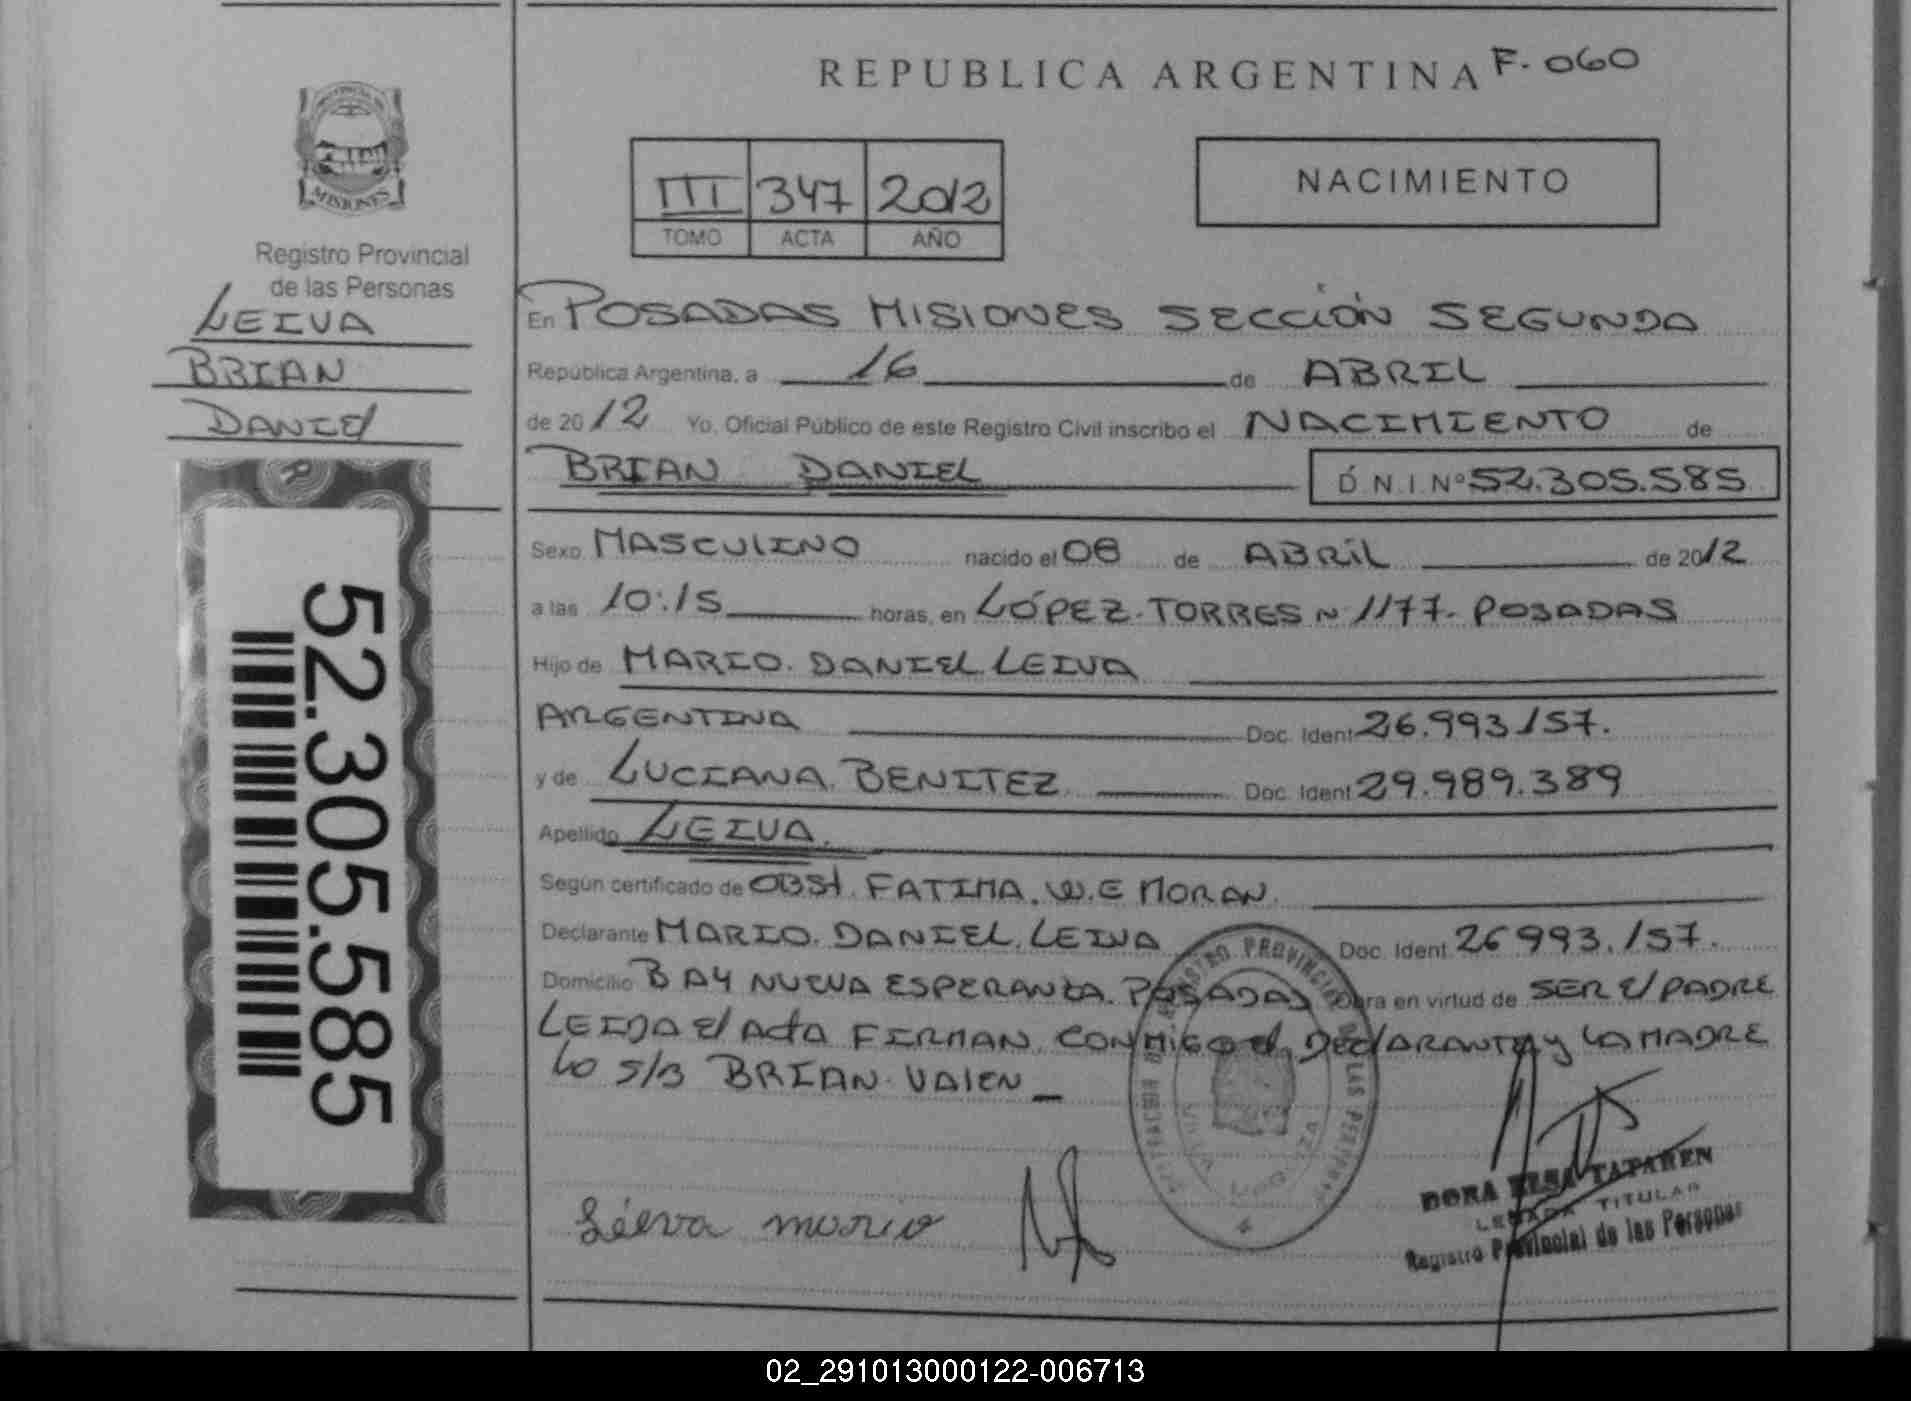 REPUBLICA ARGENTINA F-060
PROVINCIA DE
MISIONES
Registro Provincial
de las Personas
LEIVA
BRIAN
DANIEl
III 347 2012
TOMO ACTA AÑO
NACIMIENTO
En POSADAS MISIONES SECCIÓN SEGUNDA
República Argentina, a 16 de ABRIL
de 2012 Yo, Oficial Público de este Registro Civil inscribo el NACIMIENTO de
BRIAN DANIEL D.N.I.Nº 52.305.585
Sexo MASCULINO nacido el 08 de ABRIL de 2012
a las 10:15 horas, en LÓPEZ-TORRES N 1177- POSADAS
Hijo de MARIO. DANIEL LEIVA
ARGENTINA Doc. Ident 26.993.157.
y de LUCIANA. BENITEZ. Doc. Ident 29.989.389
Apellido LEIVA.
Según certificado de OBSt. FATIMA. W.E MORAN.
Declarante MARIO. DANIEL. LEIVA Doc. Ident. 26 993.157.
Domicilio B A4 NUEVA ESPERANZA. POSADAS Obra en virtud de SER El PADRE
LEIDA El ActA FIRMAN CONMIGO El DEClARANTE y LA MADRE
LO S/B BRIAN. VAlEN
Leiva mario
DORA ELSA TAPAREN
TITULAR
Registro Provincial de las Personas
52.305.585
02_291013000122-006713